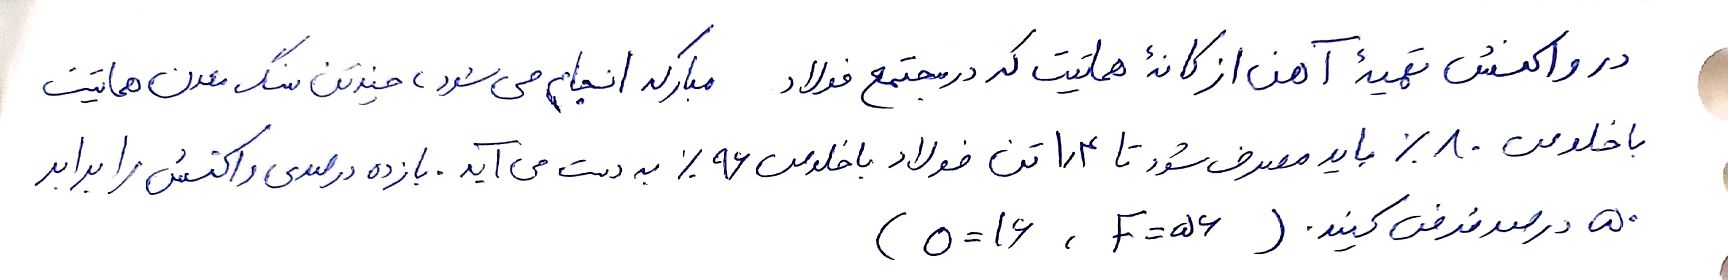 در واکنش تهیهٔ آهن از کانهٔ هماتیت که در مجتمع فولاد مبارکه انجام می شود، چند تن سنگ معدن هماتیت
با خلوص ۸۰٪ باید مصرف شود تا ۱٫۴ تن فولاد با خلوص ۹۶٪ به دست می آید. بازده درصدی واکنش را برابر
۵۰ درصد فرض کنید. (F=۵۶ ، O=۱۶)